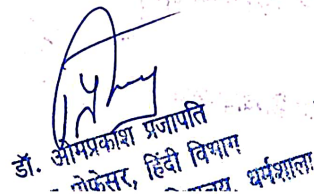 डॉ. ओमप्रकाश प्रजापति
प्रोफेसर, हिंदी विभाग
धर्मशाला